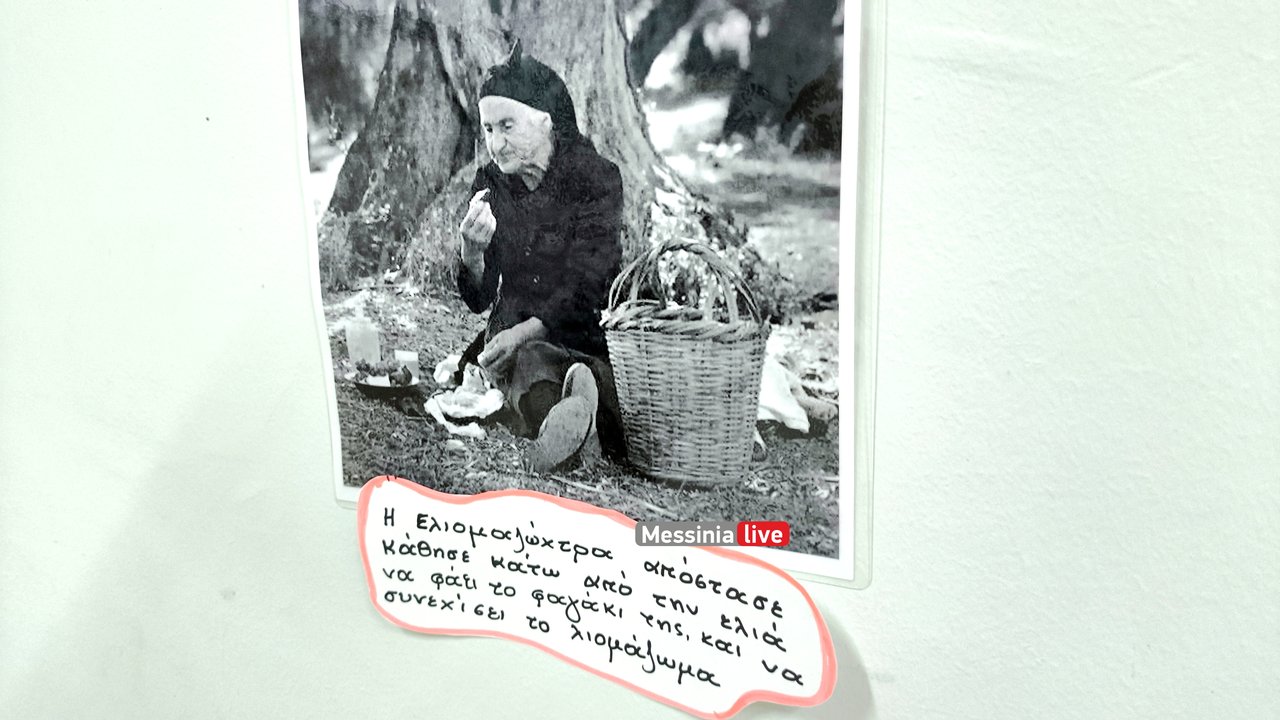 Messinia live
Η Ελιομαζώχτρα, απόστασε
κάθησε κάτω από την ελιά
να φάει το φαγάκι της, και να
συνεχίσει το λιομάζωμα